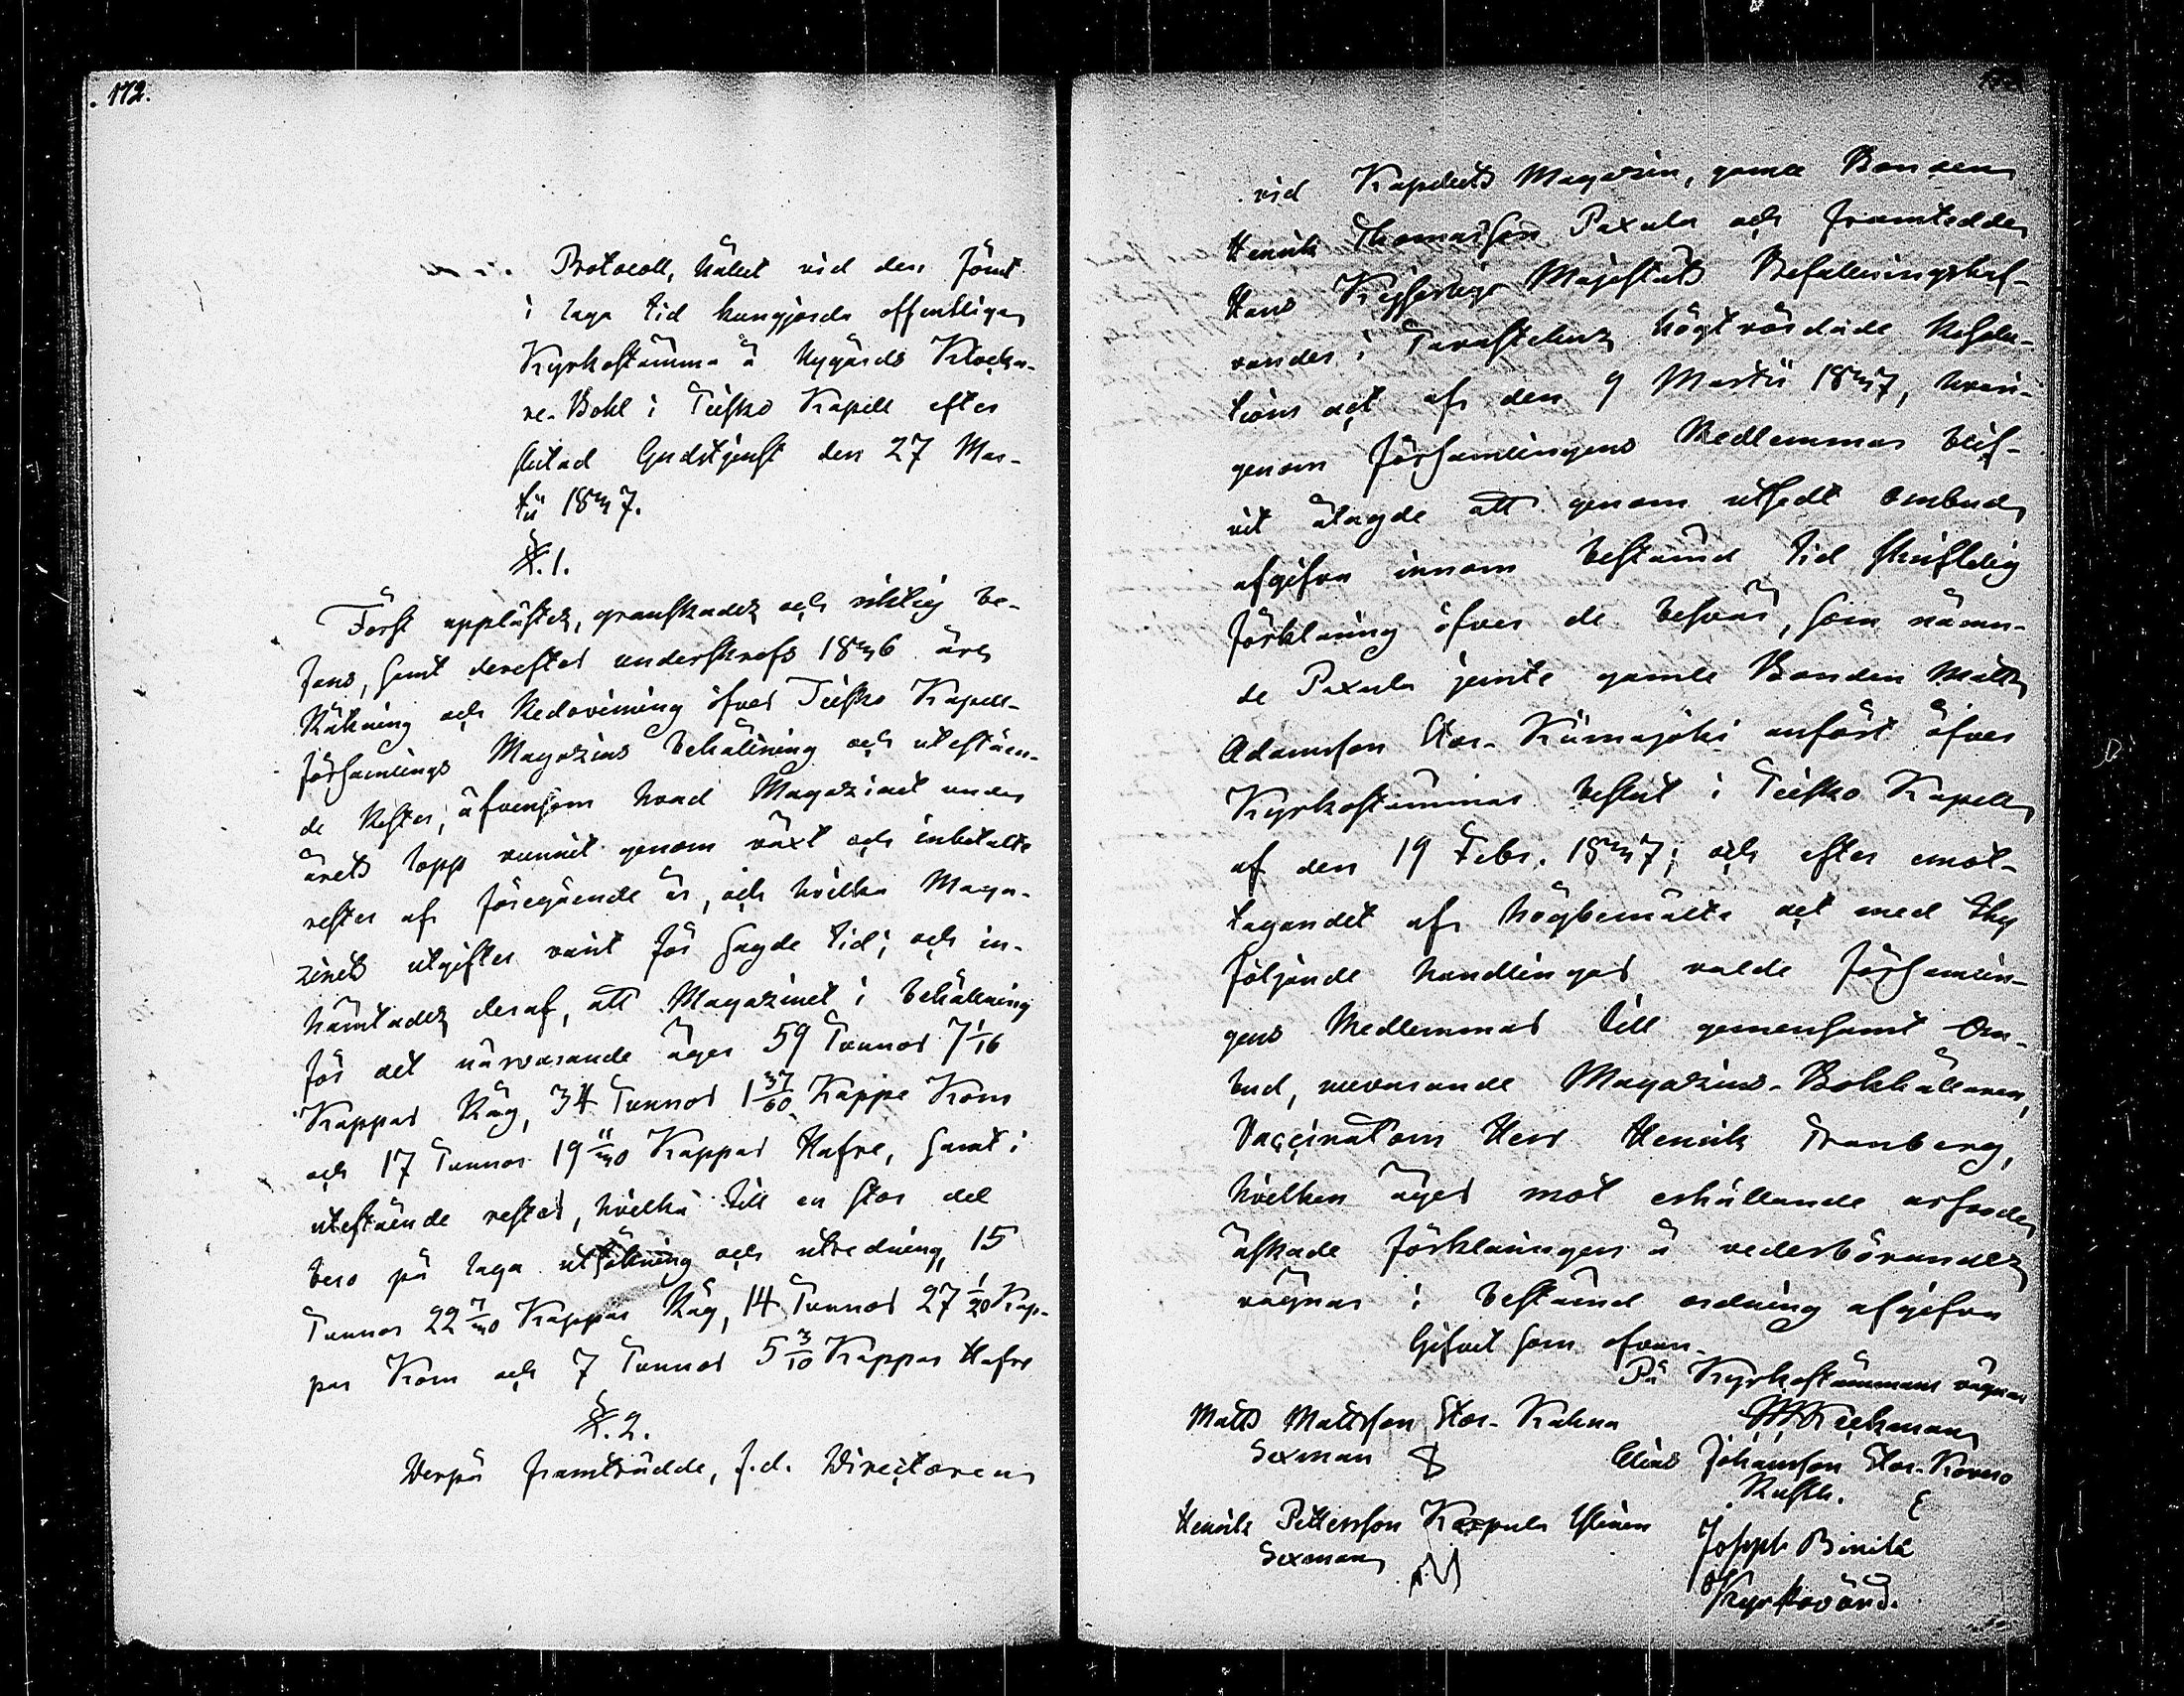 172.
Protocoll, hållet vid den jemt
i laga tid kungjorda offentliga
Kyrkostämma å Nygårds Klocka-
re-Bohl i Teisko Kapell efter
slutad Gudstjenst den 27 Mar-
tii 1847.
§.1.
Först upplästes, granskades och riktig be-
fans, samt derefter underskrefs 1846 års
Räkning och Redovisning öfver Teisko Kapell-
församlings Magazins behållning och utestäen-
de Rester, äfvensom hvad Magazinet under
årets lopp vunnit genom växt och inbetalte
rester af föregående år, och hvilka Maga-
zinets utgifter varit för sagde tid; och in-
hämtades deraf, att Magazinet i behållning
för det närvarande äger 59 Tunnor 7 1/16
Kappar Råg, 34 Tunnor 1 37/60 Kappe Korn
och 17 Tunnor 19 11/40 Kappar Hafre, samt i
utestående rester, hvilka till en stor del
bero på laga utsökning och utredning, 15
Tunnor 22 7/40 Kappar Råg, 14 Tunnor 27 1/20 Kap-
par Korn och 7 Tunnor 5 3/10 Kappar Hafre
§.2.
Derpå framträdde, f.d. Directoren
vid Kapellets Magazin, gamle Bonden
Henrik Thomasson Paxula och framtedde
Hans Kejserliga Majestäts Befallningshaf-
vandes i Tavastehus högtvördade Resolu-
tions act af den 9 Martii 1847, hvari-
genom Församlingens Medlemmar blif-
vit ålagde att genom utsedt ombud
afgifva innom bestämd tid skriftelig
förklaring öfver de besvär, som nämn-
de Paxula jemte gamle Bonden Matts
Adamsson Stor-Kiimajoki anfört öfver
Kyrkostämmas beslut i Teisko Kapell
af den 19 Febr. 1847; och efter emot-
tagandet af högbemälte act med thy
följande handlingar valde Församlin-
gens Medlemmar till gemensamt Om-
bud, nuvarande Magazins-Bokhållaren,
Vaccinatorn Herr Henrik Tranberg,
hvilken äger mot erhållande arfvode
äskade förklaringen å vederbörandes
vägnar i bestämd ordning afgifva
Gifvet som ofvan.
På Kyrkostämmans vägnar
Matts Mattsson Stor-Kahna
Sexman
Elias Johansson Stor-Kovero
Rusth.
Henrik Pettersson Kaopula
Sexman
Joseph
Kyrkovärd.